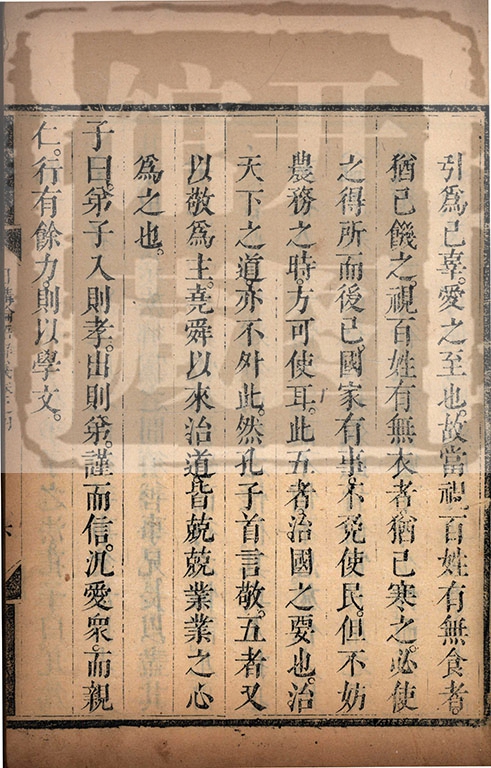 引爲己辜。愛之至也。故當視百姓有無食者。
猶己饑之。視百姓有無衣者。猶己寒之。必使
之得所而後已。國家有事。不免使民。但不妨
農務之時。方可使耳。此五者。治國之要也。治
天下之道。亦不外此。然孔子首言敬。五者又
以敬爲主。堯舜以來治道。皆兢兢業業之心
爲之也。
子曰。弟子入則孝。出則弟。謹而信。汎愛衆。而親
仁。行有餘力。則以學文。
六